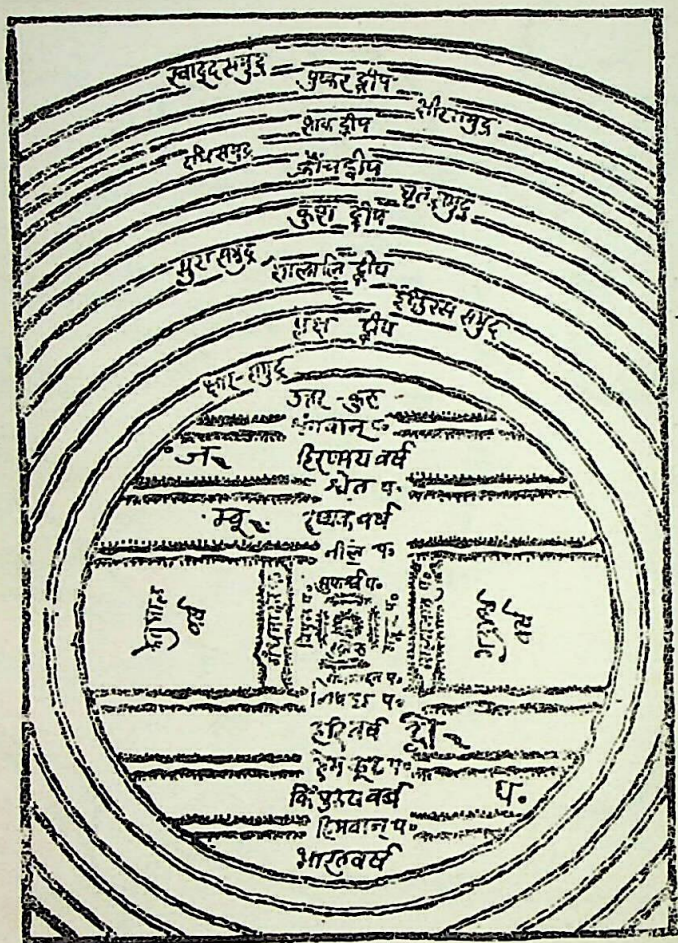 स्वादूदसमुद्र
पुष्कर द्वीप
क्षीरसमुद्र
शाकद्वीप
दधिसमुद्र
क्रौंचद्वीप
घृतसमुद्र
कुश द्वीप
सुरासमुद्र
शाल्मलि द्वीप
इक्षुरस समुद्र
प्लक्ष द्वीप
क्षार-समुद्र
उत्तर-कुरु
श्रृंगवान् प॰
जं
हिरण्मय वर्ष
श्वेत प॰
म्बू
रम्यक वर्ष
नील प॰
सुपार्श्व प॰
केतुमाल
वर्ष
विपुल प॰
निषध प॰
हरिवर्ष
द्वी
हेम कूट प॰
किंपुरुष वर्ष
प॰
हिमवान् प॰
भारतवर्ष